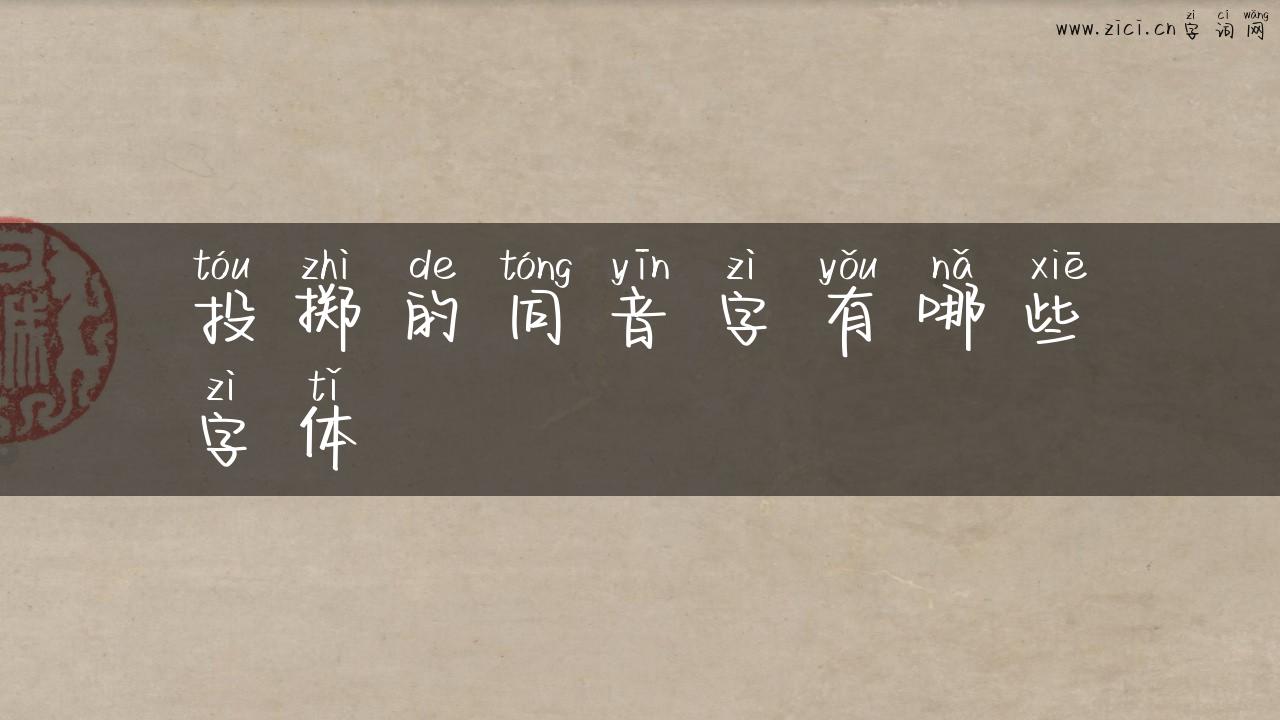 zì cí wǎng
www.zici.cn 字词网
tóu zhì de tóng yīn zì yǒu nǎ xiē
投掷的同音字有哪些
zì tǐ
字体